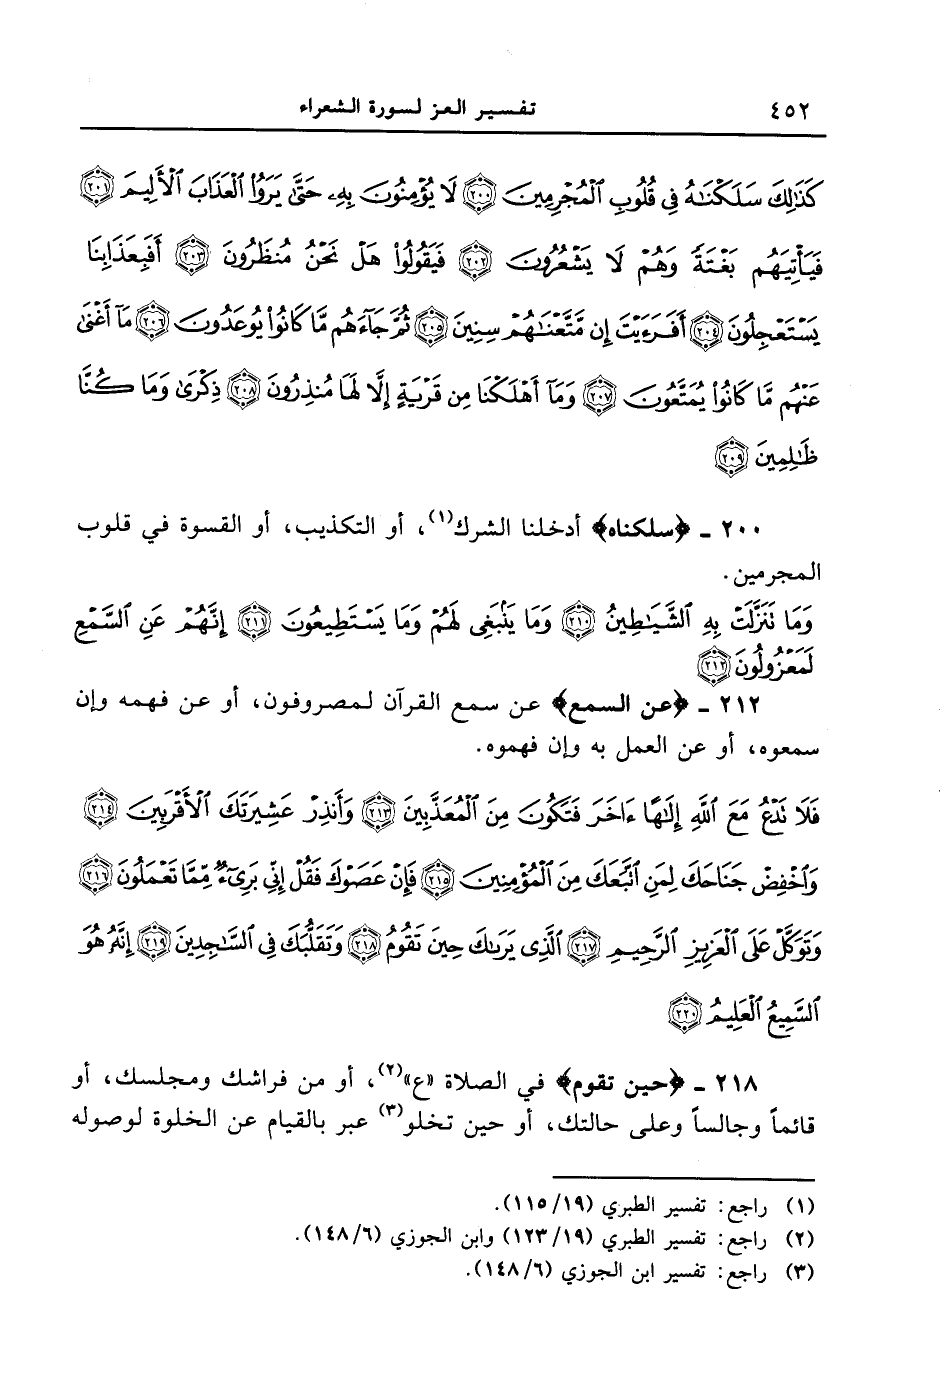 ٤٥٢ تفسير العز لسورة الشعراء
كَذَٰلِكَ سَلَكْنَـٰهُ فِى قُلُوبِ ٱلْمُجْرِمِينَ ۝٢٠٠ لَا يُؤْمِنُونَ بِهِۦ حَتَّىٰ يَرَوُا۟ ٱلْعَذَابَ ٱلْأَلِيمَ ۝٢٠١
فَيَأْتِيَهُم بَغْتَةً وَهُمْ لَا يَشْعُرُونَ ۝٢٠٢ فَيَقُولُوا۟ هَلْ نَحْنُ مُنظَرُونَ ۝٢٠٣ أَفَبِعَذَابِنَا
يَسْتَعْجِلُونَ ۝٢٠٤ أَفَرَءَيْتَ إِن مَّتَّعْنَـٰهُمْ سِنِينَ ۝٢٠٥ ثُمَّ جَآءَهُم مَّا كَانُوا۟ يُوعَدُونَ ۝٢٠٦ مَآ أَغْنَىٰ
عَنْهُم مَّا كَانُوا۟ يُمَتَّعُونَ ۝٢٠٧ وَمَآ أَهْلَكْنَا مِن قَرْيَةٍ إِلَّا لَهَا مُنذِرُونَ ۝٢٠٨ ذِكْرَىٰ وَمَا كُنَّا
ظَـٰلِمِينَ ۝٢٠٩
٢٠٠ ـ ﴿سلكناه﴾ أدخلنا الشرك(١)، أو التكذيب، أو القسوة في قلوب
المجرمين.
وَمَا تَنَزَّلَتْ بِهِ ٱلشَّيَـٰطِينُ ۝٢١٠ وَمَا يَنۢبَغِى لَهُمْ وَمَا يَسْتَطِيعُونَ ۝٢١١ إِنَّهُمْ عَنِ ٱلسَّمْعِ
لَمَعْزُولُونَ ۝٢١٢
٢١٢ ـ ﴿عن السمع﴾ عن سمع القرآن لمصروفون، أو عن فهمه وإن
سمعوه، أو عن العمل به وإن فهموه.
فَلَا تَدْعُ مَعَ ٱللَّهِ إِلَـٰهًا ءَاخَرَ فَتَكُونَ مِنَ ٱلْمُعَذَّبِينَ ۝٢١٣ وَأَنذِرْ عَشِيرَتَكَ ٱلْأَقْرَبِينَ ۝٢١٤
وَٱخْفِضْ جَنَاحَكَ لِمَنِ ٱتَّبَعَكَ مِنَ ٱلْمُؤْمِنِينَ ۝٢١٥ فَإِنْ عَصَوْكَ فَقُلْ إِنِّى بَرِىٓءٌ مِّمَّا تَعْمَلُونَ ۝٢١٦
وَتَوَكَّلْ عَلَى ٱلْعَزِيزِ ٱلرَّحِيمِ ۝٢١٧ ٱلَّذِى يَرَىٰكَ حِينَ تَقُومُ ۝٢١٨ وَتَقَلُّبَكَ فِى ٱلسَّـٰجِدِينَ ۝٢١٩ إِنَّهُۥ هُوَ
ٱلسَّمِيعُ ٱلْعَلِيمُ ۝٢٢٠
٢١٨ ـ ﴿حين تقوم﴾ في الصلاة «ع»(٢)، أو من فراشك ومجلسك، أو
قائماً وجالساً وعلى حالتك، أو حين تخلو(٣) عبر بالقيام عن الخلوة لوصوله
(١) راجع: تفسير الطبري (١١٥/١٩).
(٢) راجع: تفسير الطبري (١٢٣/١٩) وابن الجوزي (١٤٨/٦).
(٣) راجع: تفسير ابن الجوزي (١٤٨/٦).